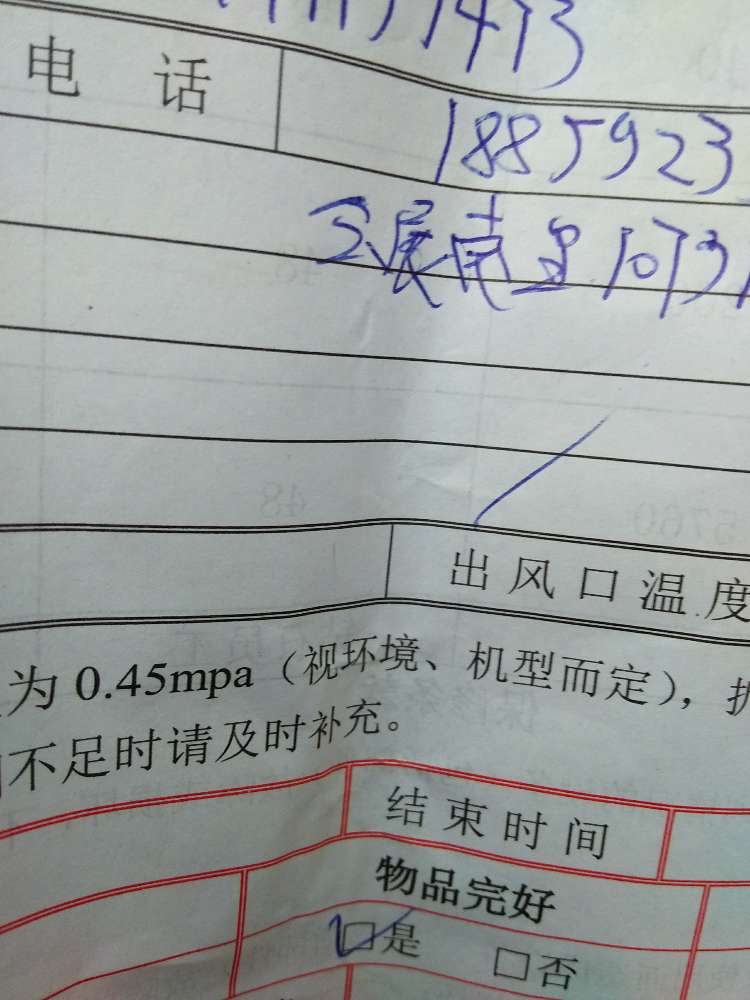 1473
电话 1885923
展南里1073
出风口温度
为0.45mpa（视环境、机型而定），
不足时请及时补充。
结束时间
物品完好
☑是 □否